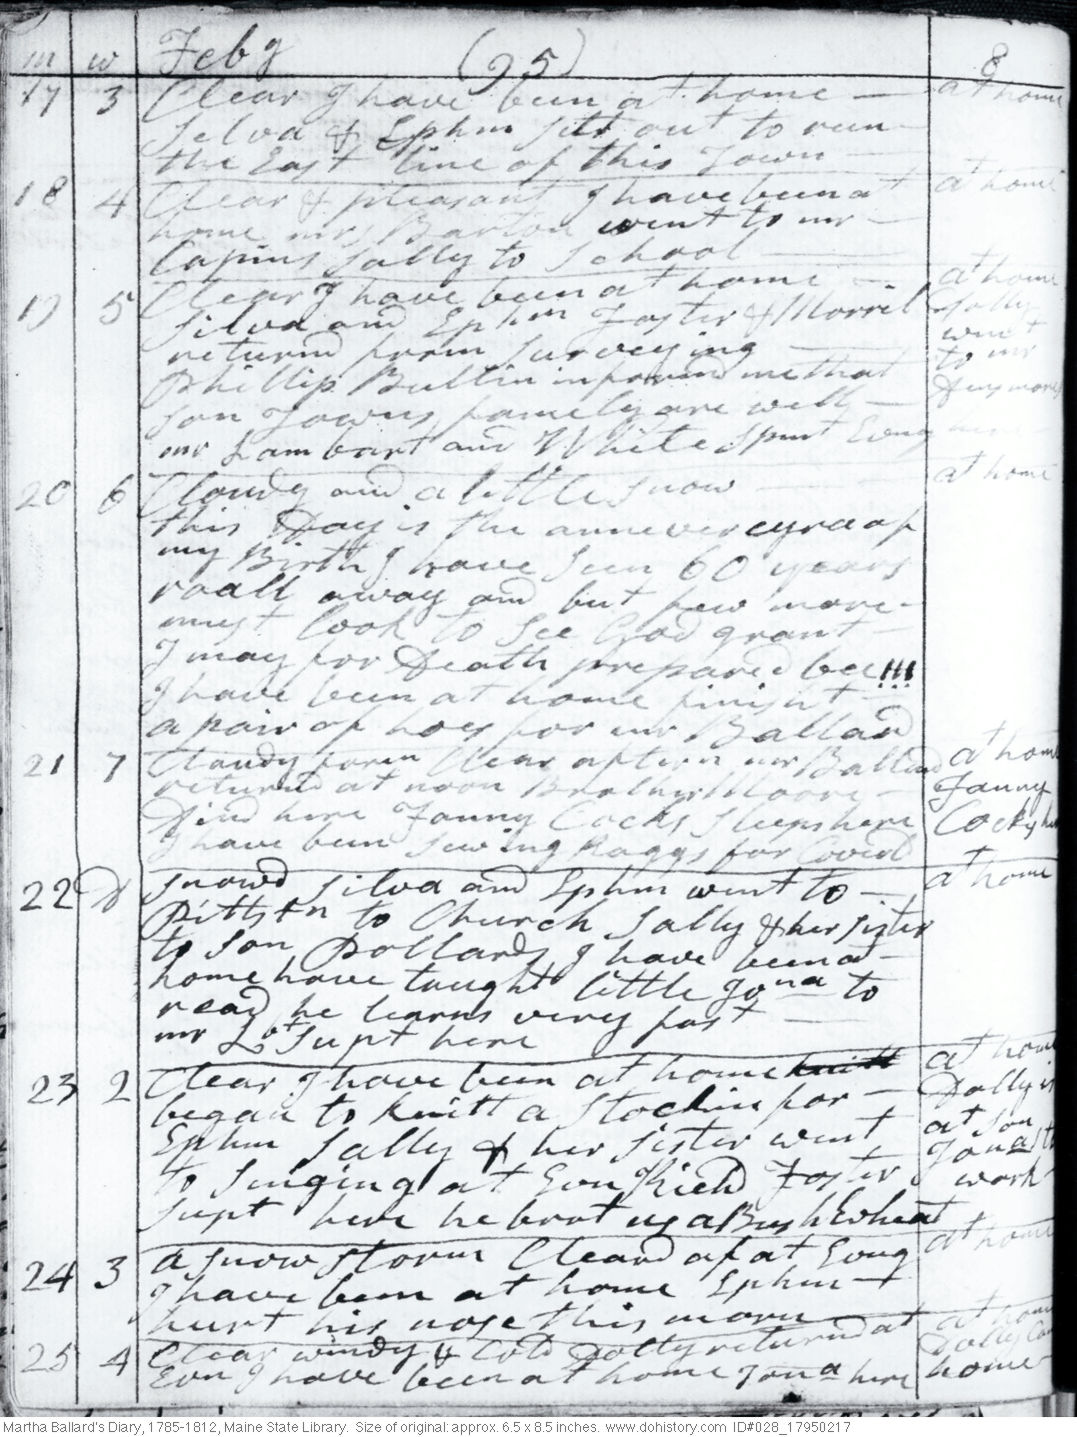 m w Feby (95) 8
17 3 Clear I have been at home — at home
Silva & Ephm sett out to run
the East line of this Town —
18 4 Clear & pleasant I have been at at home
home mrs Barton went to mr
Capins Sally to School —
19 5 Clear I have been at home — at home
Silva and Ephm Foster & Morril Sally
returnd from Surveying — went
to mr
Phillip Bullin informd me that
son Towns family are well —
mr Lambart and White Spent Evng here
20 6 Cloudy and a little snow — at home
this Day is the annevercyrea of
my Birth I have Seen 60 years
roall away and but few more
must look to See God grant
I may for Death prepared bee!!!
I have been at home finisht
a pair of hoes for mr Ballard
21 7 Cloudy form Clear aftern mr Ballard at home
returnd at noon Brother Moore — Fanny
Dind here Fanny Cocks Sleeps here Cocks here
I have been Sewing Raggs for Coverl
22 D Snowd Silva and Ephm went to — at home
Pittstn to Church Sally & her sister
to Son Pollards I have been at
home have taught little Jona to
read he learns very fast —
mr Lot Supt here
23 2 Clear I have been at home knitt at home
began to knitt a Stockin for — Dolly is
Ephm Sally & her sister went at son
to Singing at Evn Richd Foster Jonas to
work
Supt here he brot us a Bush Wheat
24 3 a snow storm Cleard of at Evng at home
I have been at home Ephm
hurt his nose this morn
25 4 Clear windy & Cold Dolly returnd at at home
Evn I have been at home Jona here Dolly Came
home
Martha Ballard's Diary, 1785-1812, Maine State Library. Size of original: approx. 6.5 x 8.5 inches. www.dohistory.com ID#028_17950217